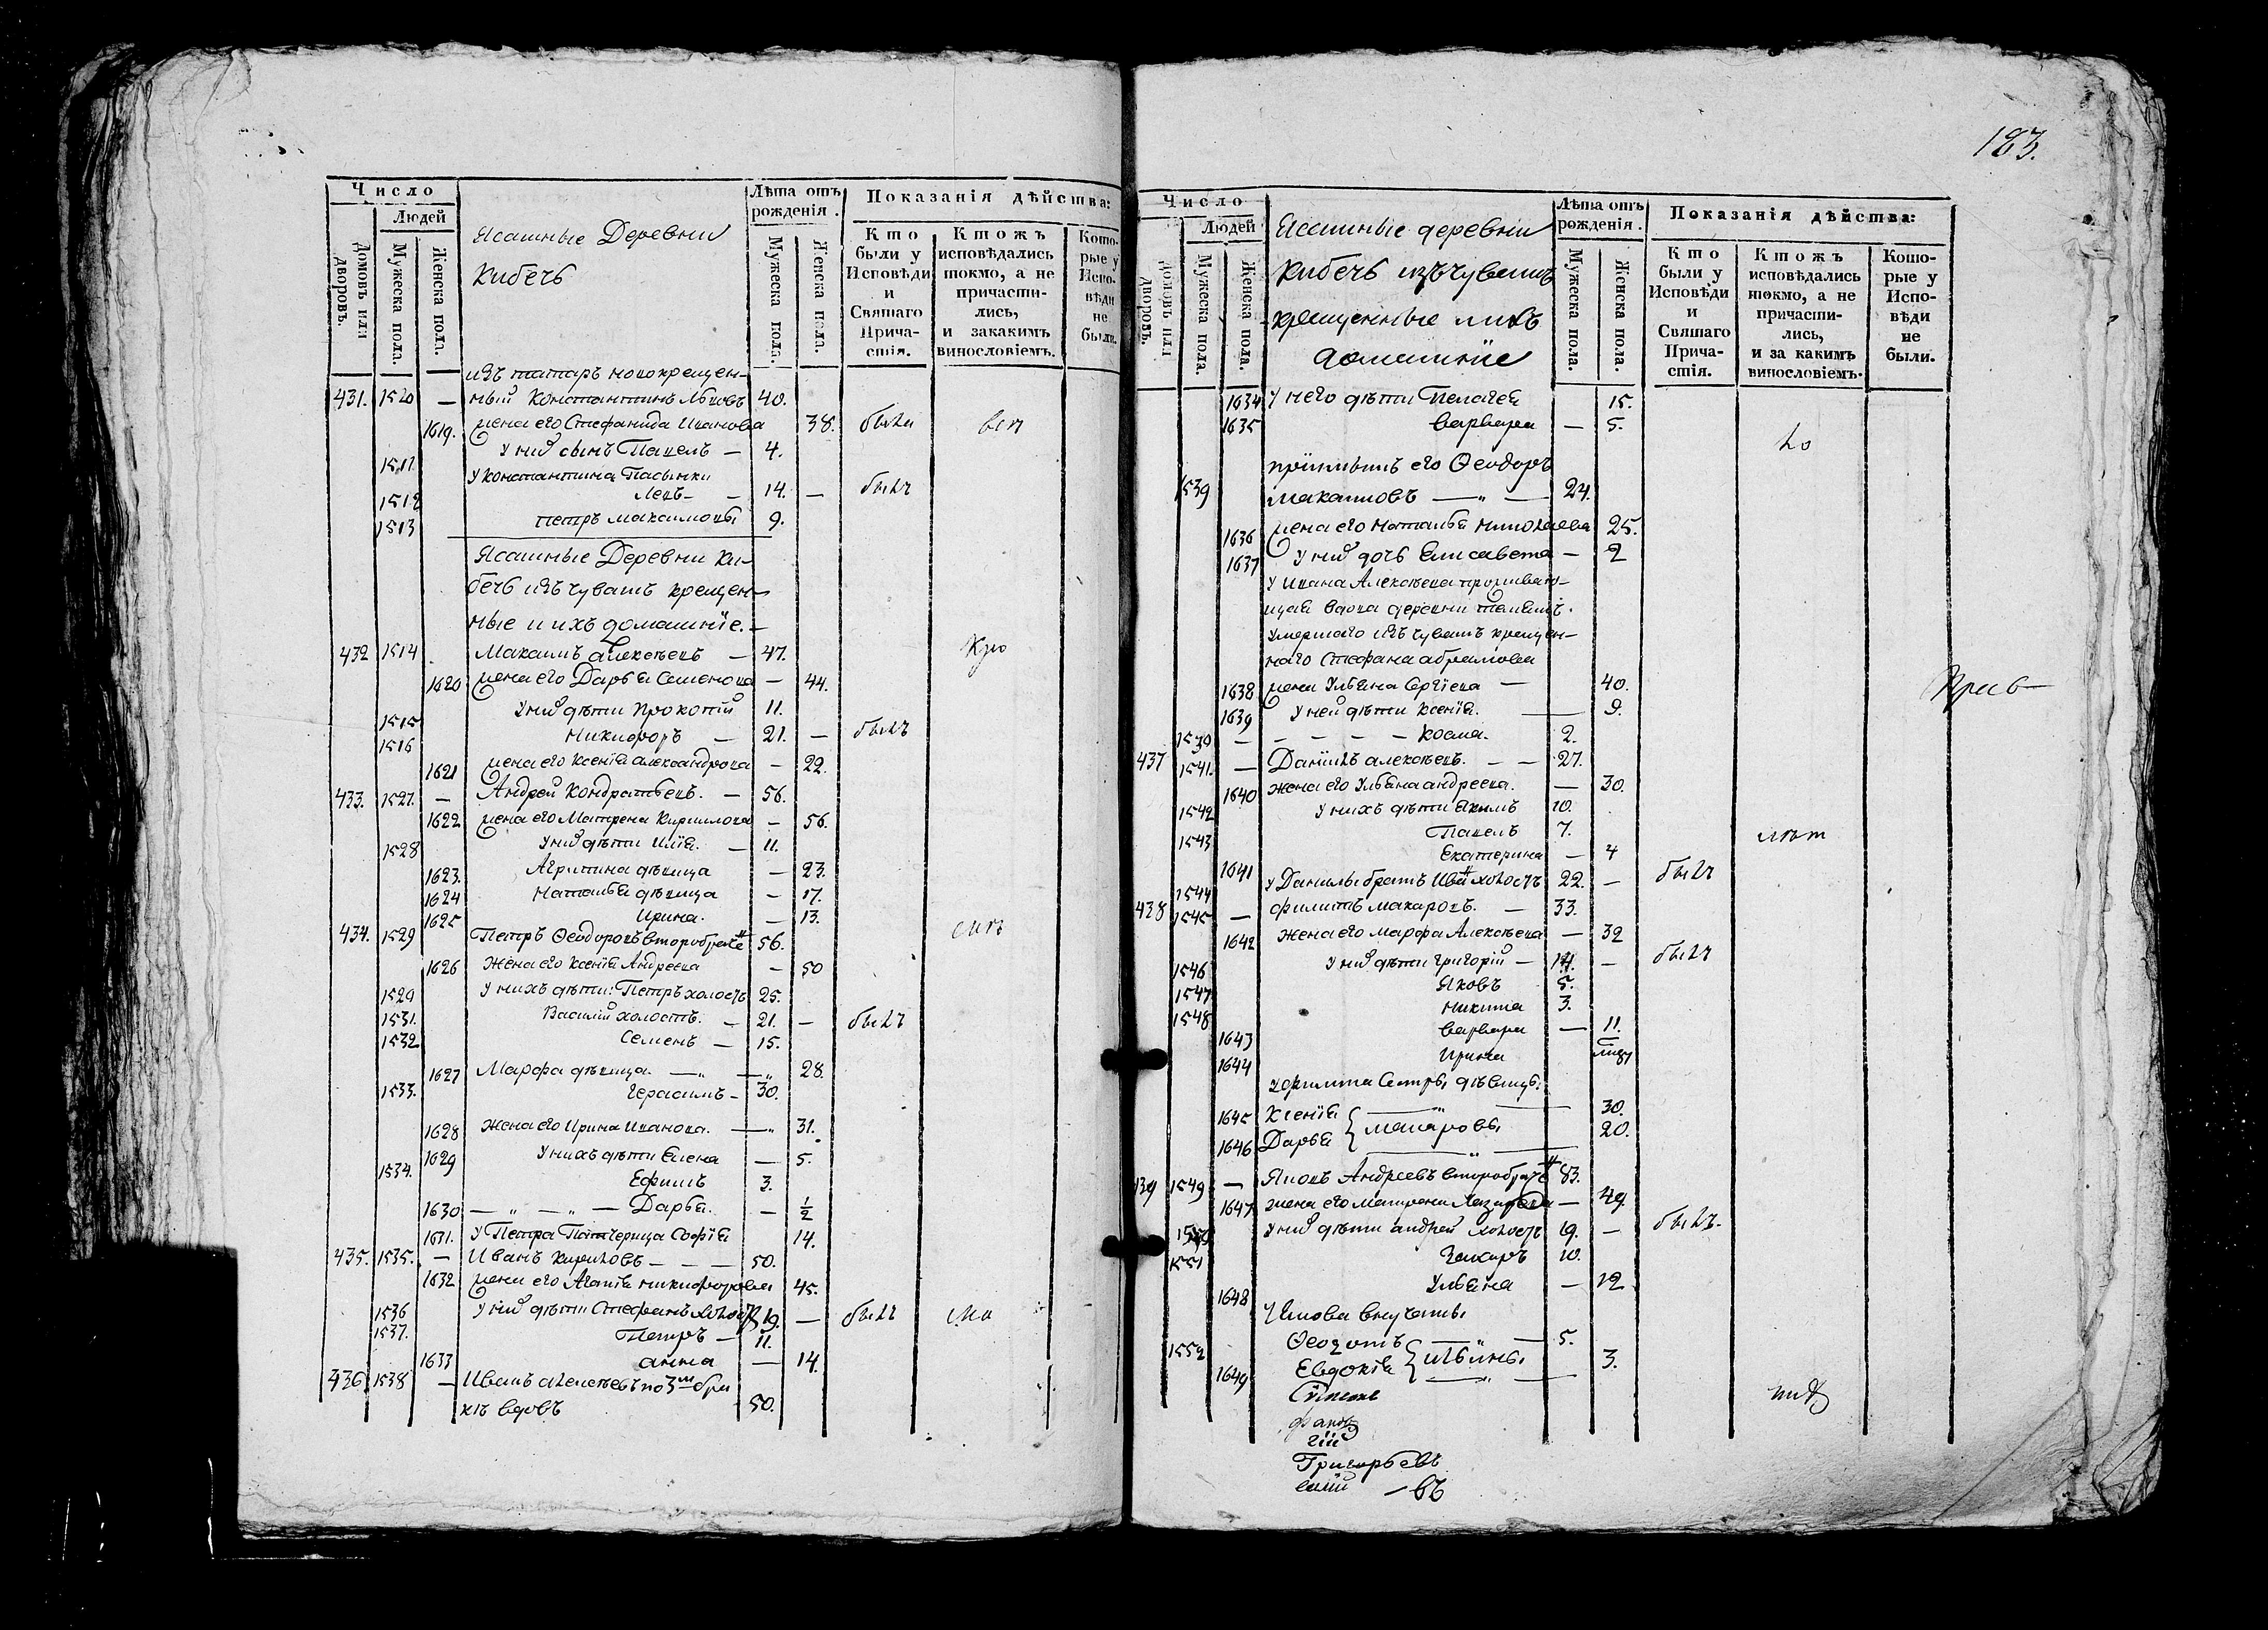 183.
Число
Людей
Домовъ или дворовъ.
Мужеска пола.
Женска пола.
Ясашные Деревни
Кибечь
Лѣта отъ рожденія.
Мужеска пола.
Женска пола.
Показанія дѣйства:
Кто были у Исповѣди и Святаго Прича-стія.
Ктожъ исповѣдались токмо, а не причасти-лись, и закакимъ винословіемъ.
Кото-рые у Испо-вѣди не были.
изъ татаръ новокрещен-
431. 1520 — ный Константинъ 40.
1619. жена его Стефанида Иванова 38. были
1511 у них сынъ Павелъ — 4.
у Константина Пасынки
1512 — 14. — былъ
1513 Петръ Максимовы 9.
Ясашные Деревни Ки-
бечь изъ чувашъ крещен-
ные и ихъ домашніе. —
432 1514 Максимъ Алексѣевъ — 47.
1620 жена его Дарья Семенова — 44.
1515 у них дѣти Прокопій 11.
1516 Никифоръ — 21. — былъ
1621 жена его Ксенія Александрова — 22.
433. 1527. — Андрей Кондратьевъ. — 56.
1622 жена его Матрена Кирилова — 56.
1528 у них дѣти Илія. — 11.
1623. Агрипина дѣвица — 23.
1624 Наталья дѣвица — 17.
1625 Ирина. — 13.
434. 1529 Петръ Ѳеодоровъ второбрач 56.
1626 Жена его Ксенія Андреева — 50
1529 У нихъ дѣти: Петръ холостъ 25.
1531. Василій холостъ. — 21. — былъ
1532 Семенъ — 15.
1627 Марфа дѣвица. — „ — „ 28.
1533. Герасимъ — 30.
1628 жена его Ирина Иванова. — „ 31.
1629 У нихъ дѣти Елена — 5.
1534. Ефимъ 3.
1630 — „ — „ — Дарья. — ½
1631. У Петра Падчерица Софія 14.
435. 1535. — Иванъ Кириловъ — — — 50.
1632 жена его Агапія Никифорова 45.
1536 у них дѣти Стефанъ холостъ 19. — былъ
1537. Петръ — 11.
1633 Анна — 14.
436 1538 — Иванъ Алексѣевъ по 3му бра
кѣ вдовъ 50.
Число
Людей
Домовъ или дворовъ.
Мужеска пола.
Женска пола.
Ясашные деревни
Кибечь изъ чувашъ
крещенные и ихъ
домашніе
Лѣта отъ рожденія.
Мужеска пола.
Женска пола.
Показанія дѣйства:
Кто были у Исповѣди и Святаго Прича-стія.
Ктожъ исповѣдались токмо, а не причасти-лись, и за какимъ винословіемъ.
Кото-рые у Испо-вѣди не были.
1634 у него дѣти Пелагея 15.
1635 Варвара — 5.
пріимышъ его Ѳеодоръ
1539 — „ — 24.
1636 жена его Наталья Николаева 25.
1637 у них дочь Елисавета — 2
у Ивана Алексѣева проживаю-
щая вдова деревни
умершаго изъ чувашъ крещен-
наго Стефана Абрамова
1638 жена Ульяна Сергіева — 40.
1639 у ней дѣти Ксенія. — 9.
1530 — — — — — Косма. 2.
437 1541. — Даніилъ Алексѣевъ. — — 27.
1640 жена его Ульяна Андреева. — 30.
1542 у нихъ дѣти Якимъ 10.
1543 Павелъ 7.
1641 Екатерина — 4
1544 у Данилы братъ холостъ 22. — былъ
438 1545 — Филипъ Макаровъ. — 33.
1642 жена его Марфа Алексѣева — 32
1546 у них дѣти Григорій — 14. — былъ
1547 Яковъ 5.
1548 Никита 3.
1643 Варвара — 11.
1644 Ирина
у Филипа сестры дѣвицы.
1645 Ксенія — „ — 30.
1646 Дарья { Макаровы 20.
1549 — Яковъ Андреевъ второбрач 83.
1647 жена его Матрена Лазарева — 49.
у них дѣти Андрей холостъ 19. — былъ.
1551 Захаръ 10.
1648 Ульяна — 12
у Якова внучаты
1552 Ѳеодотъ — „ — 5.
1649 Евдокія { Ильины 3.
Григорьевъ